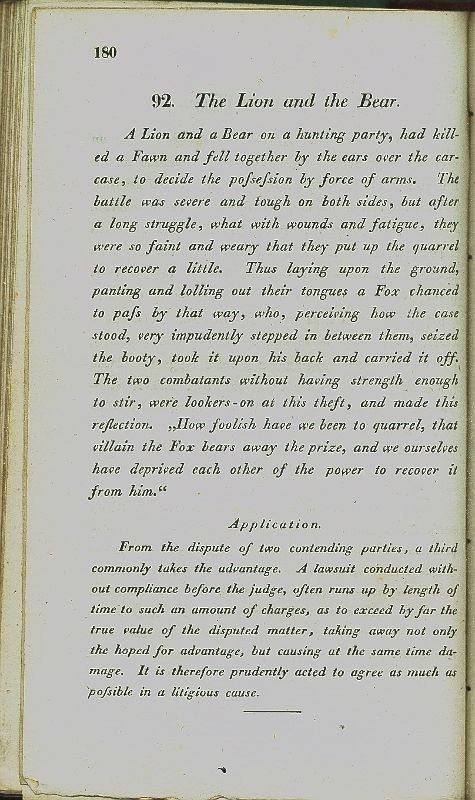 180
92. The Lion and the Bear.
A Lion and a Bear on a hunting party, had kill-
ed a Fawn and fell together by the ears over the car-
case, to decide the poſseſsion by force of arms. The
battle was severe and tough on both sides, but after
a long struggle, what with wounds and fatigue, they
were so faint and weary that they put up the quarrel
to recover a little. Thus laying upon the ground,
panting and lolling out their tongues a Fox chanced
to paſs by that way, who, perceiving how the case
stood, very impudently stepped in between them, seized
the booty, took it upon his back and carried it off.
The two combatants without having strength enough
to stir, were lookers-on at this theft, and made this
reflection. „How foolish have we been to quarrel, that
villain the Fox bears away the prize, and we ourselves
have deprived each other of the power to recover it
from him.“
Application.
From the dispute of two contending parties, a third
commonly takes the advantage. A lawsuit conducted with-
out compliance before the judge, often runs up by length of
time to such an amount of charges, as to exceed by far the
true value of the disputed matter, taking away not only
the hoped for advantage, but causing at the same time da-
mage. It is therefore prudently acted to agree as much as
poſsible in a litigious cause.